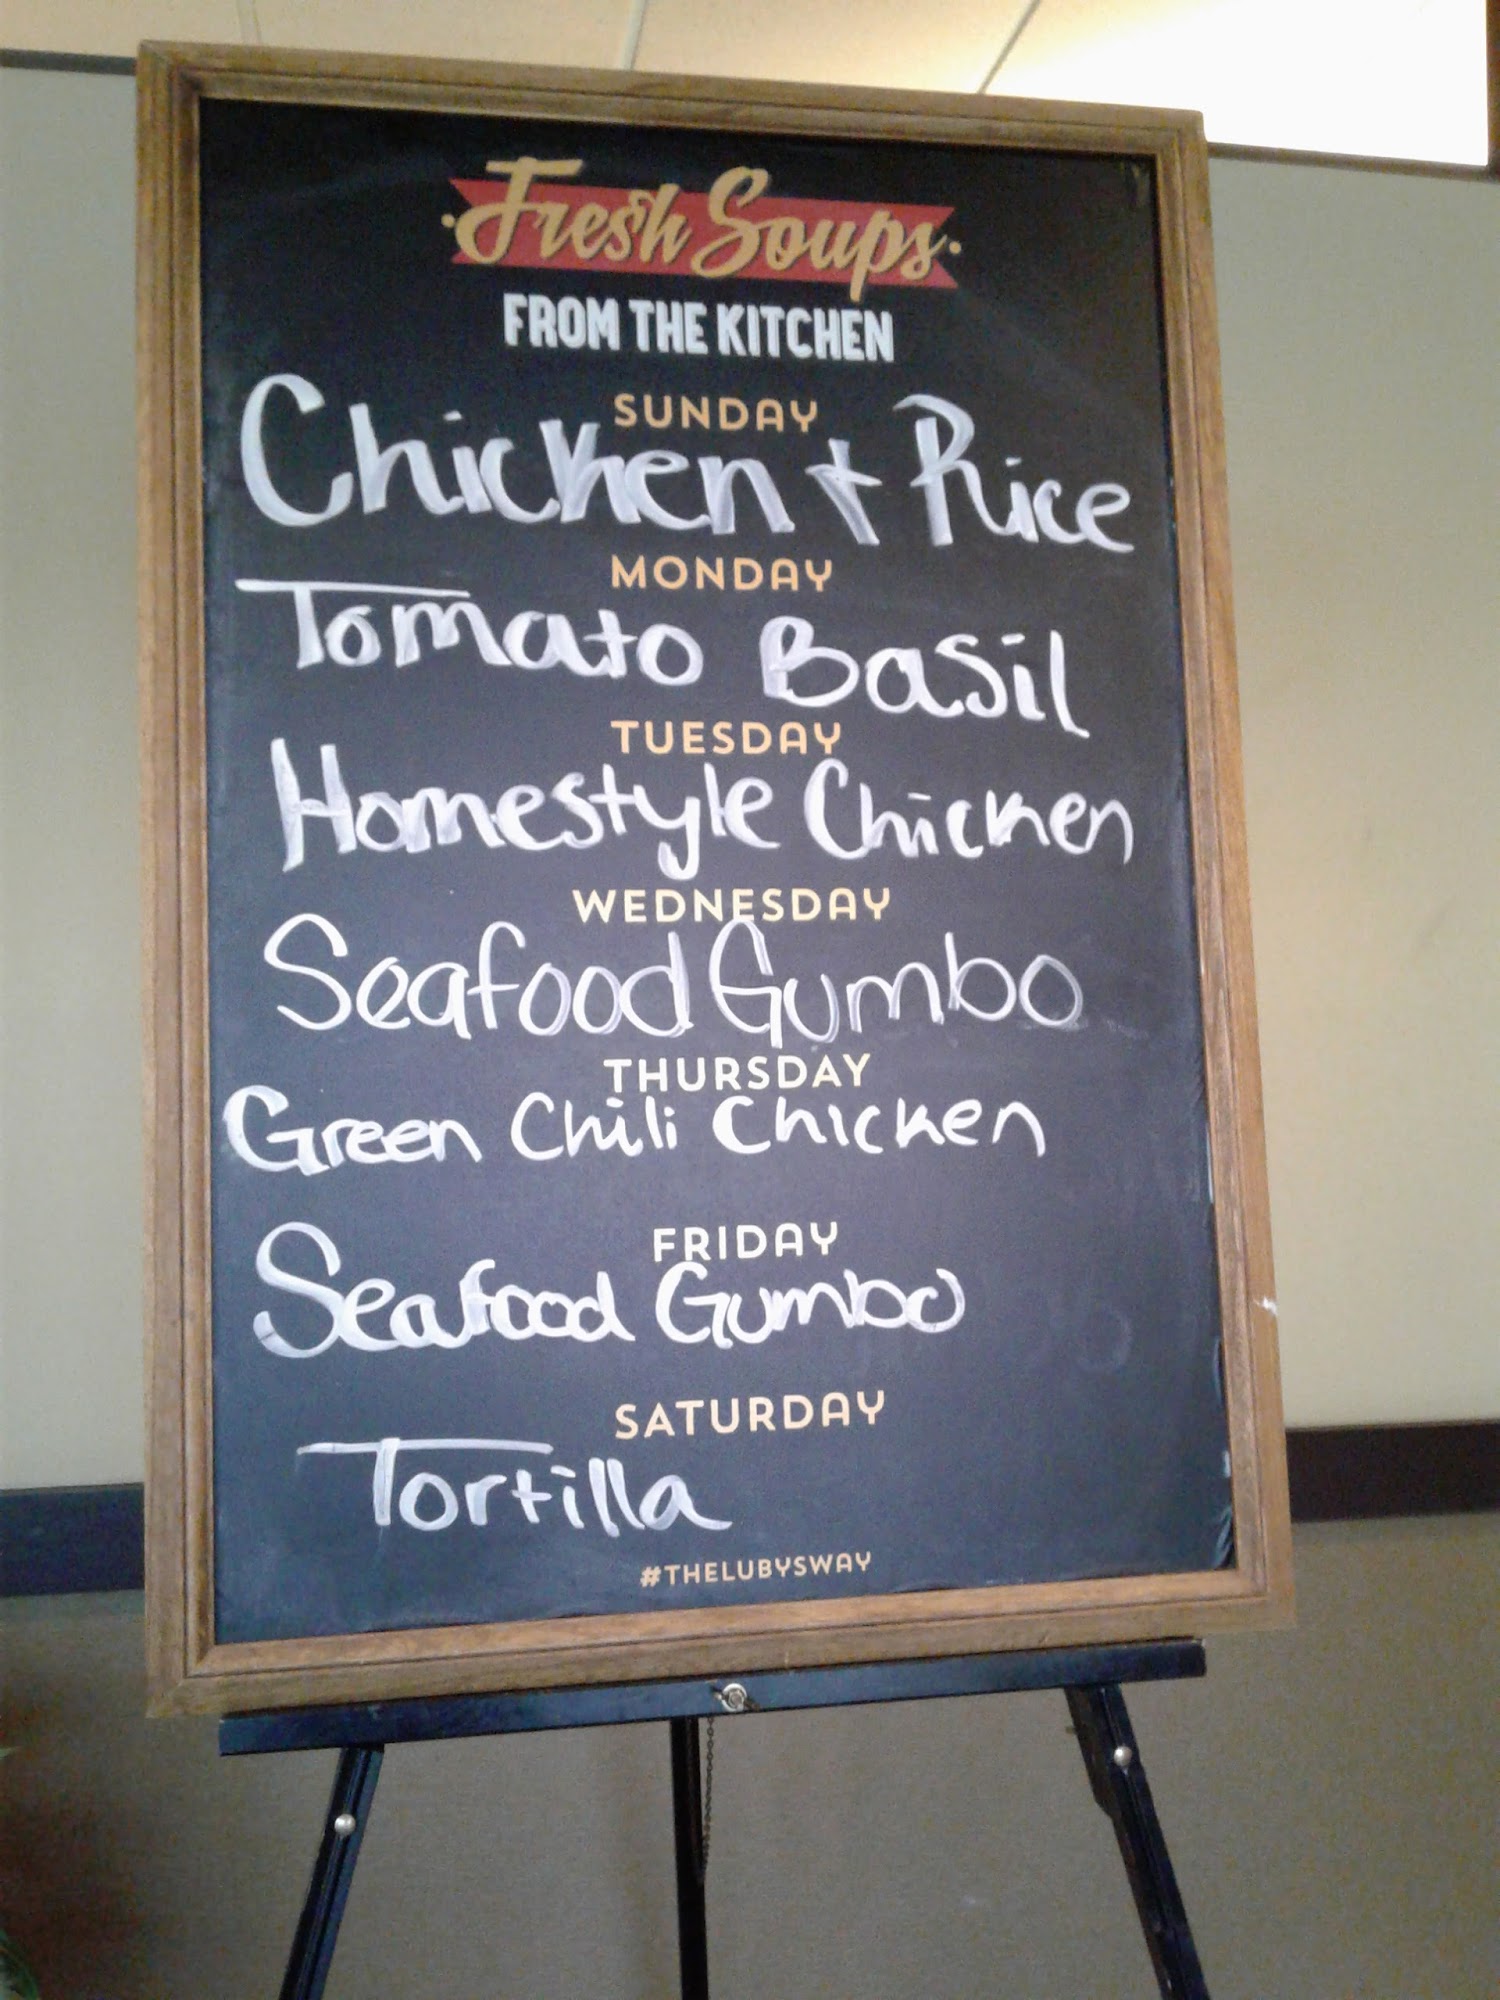 Fresh Soups
FROM THE KITCHEN
SUNDAY
Chicken + Rice
MONDAY
Tomato Basil
TUESDAY
Homestyle Chicken
WEDNESDAY
Seafood Gumbo
THURSDAY
Green Chili Chicken
FRIDAY
Seafood Gumbo
SATURDAY
Tortilla
#THELUBYSWAY